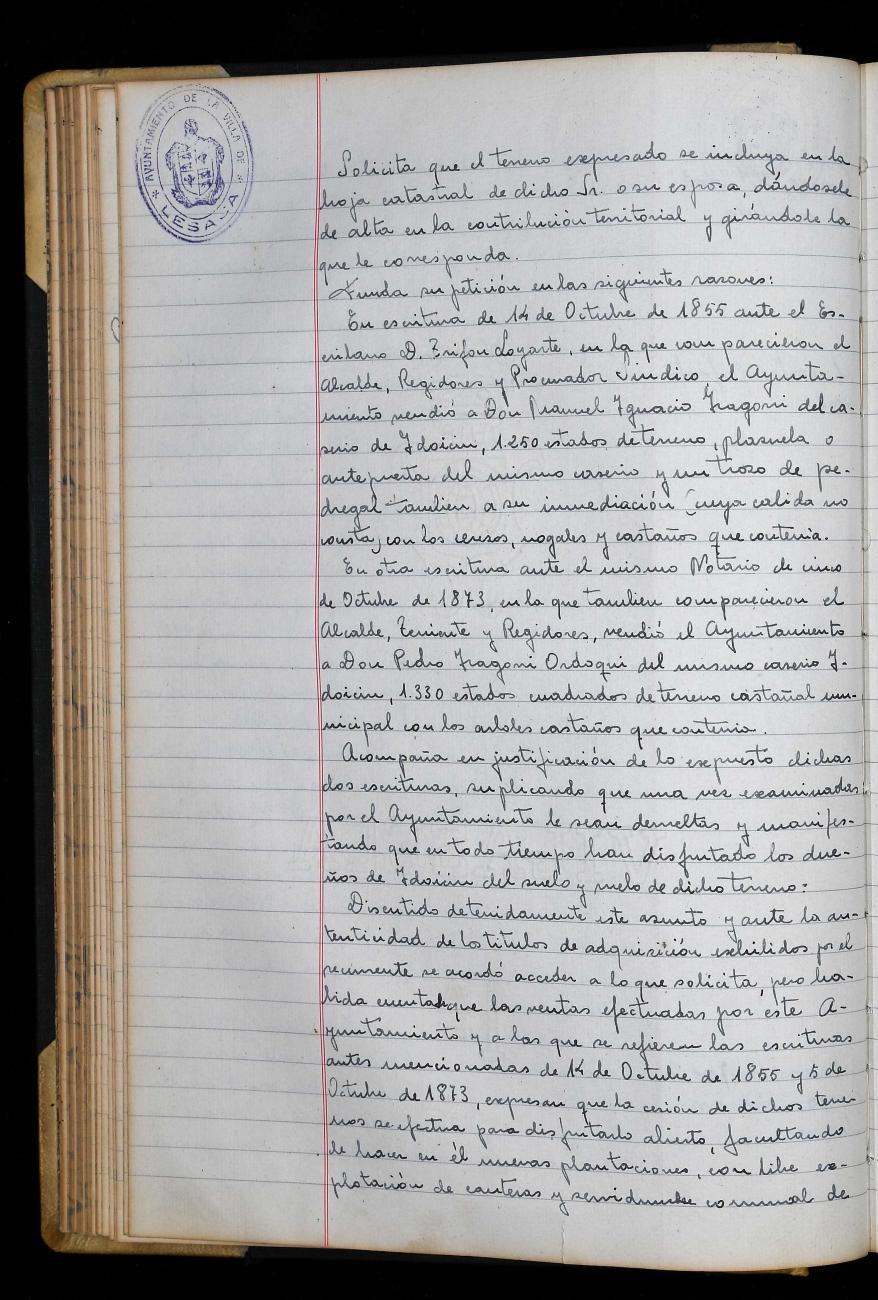 AYUNTAMIENTO DE LA VILLA DE
* LESACA *
Solicita que el terreno expresado se incluya en la
hoja catastral de dicho Sr. o su esposa, dándosele
de alta en la contribución territorial y girándole la
que le corresponda.
Funda su petición en las siguientes razones:
En escritura de 14 de Octubre de 1855 ante el Es-
cribano D. Trifon Loyarte, en la que comparecieron el
Alcalde, Regidores y Procurador Síndico, el Ayunta-
miento vendió a Don Manuel Ygnacio Yragorri del ca-
serio de Ydoicin, 1.250 estados de terreno, plazuela o
antepuerta del mismo caserio y un trozo de pe-
dregal tambien a su inmediación (cuya cabida no
consta) con los cerezos, nogales y castaños que contenia.
En otra escritura ante el mismo Notario de cinco
de Octubre de 1873, en la que tambien comparecieron el
Alcalde, Teniente y Regidores, vendió el Ayuntamiento
a Don Pedro Yragorri Ordoqui del mismo caserio Y-
doicin, 1.330 estados cuadrados de terreno castañal mu-
nicipal con los arboles castaños que contenia.
Acompaña en justificación de lo expuesto dichas
dos escrituras, suplicando que una vez examinadas
por el Ayuntamiento le sean devueltas y manifes-
tando que en todo tiempo han disfrutado los due-
ños de Ydoicin del suelo y vuelo de dicho terreno:
Discutido detenidamente este asunto y ante la au-
tenticidad de los titulos de adquisición exhibidos por el
recurrente se acordó acceder a lo que solicita, pero ha-
bida cuenta que las ventas efectuadas por este A-
yuntamiento y a las que se refieren las escrituras
antes mencionadas de 14 de Octubre de 1855 y 5 de
Octubre de 1873, expresan que la cesión de dichos terre-
nos se efectua para disfrutarlo abierto, facultando
le hacer en él nuevas plantaciones, con libre ex-
plotación de canteras y servidumbre comunal de